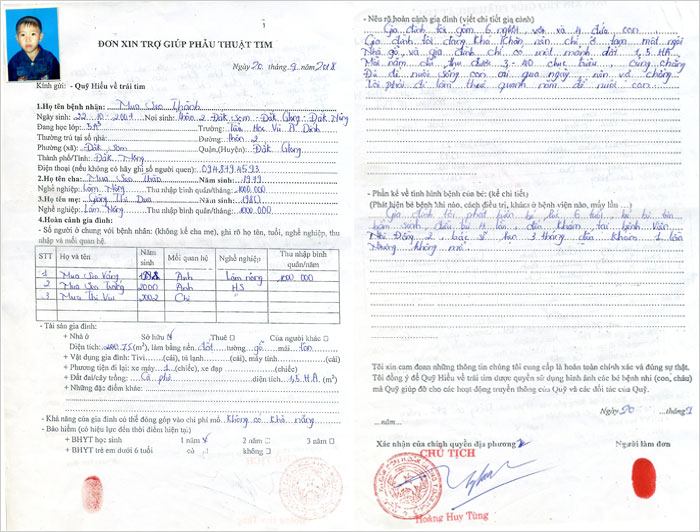 ĐƠN XIN TRỢ GIÚP PHẪU THUẬT TIM
Ngày 20 tháng 9 năm 2018
Kính gửi: - Quỹ Hiểu về trái tim
1.Họ tên bệnh nhân: Mua Seo Thành
Ngày sinh: 22-10-2009 Nơi sinh: thôn 2 - Đắk Som - Đắk Glong - Đắk Nông
Đang học lớp: 3A Trường: Tiểu Học Vừ A Dính
Thường trú tại số nhà: Đường: thôn 2
Phường (xã): Đắk Som Quận,(Huyện): Đắk Glong
Thành phố/Tỉnh: Đắk Nông
Điện thoại (nếu không có hãy ghi số người quen): 0948794593
2.Họ tên cha: Mua Seo Năm sinh: 1979
Nghề nghiệp: Làm Nông Thu nhập bình quân/tháng: 1000.000
3.Họ tên mẹ: Giàng Thị Dua Năm sinh: 1980
Nghề nghiệp: Làm Nông Thu nhập bình quân/tháng: 1000.000
4.Hoàn cảnh gia đình:
- Số người ở chung với bệnh nhân: (không kể cha mẹ), ghi rõ họ tên, tuổi, nghề nghiệp, thu nhập và mối quan hệ.
STT Họ và tên Năm sinh Mối quan hệ Nghề nghiệp Thu nhập bình quân/năm
1 Mua Seo Vảng 1998 Anh Làm nông 1000.000
2 Mua Seo 2000 Anh HS
3 Mua Thị 2002 Chị
- Tài sản gia đình:
+ Nhà ở Sở hữu Thuê Của người khác
Diện tích: (m²), làm bằng nền đất tường gỗ mái tôn
+ Vật dụng gia đình: Tivi (cái), tủ lạnh (cái), máy tính (cái)
+ Phương tiện đi lại: xe máy 1 (chiếc), xe đạp (chiếc)
+ Đất đai/cây trồng: Cà phê diện tích 1,5 HA (m²)
+ Những đặc điểm khác:
- Khả năng của gia đình có thể đóng góp vào chi phí mổ: Không có khả năng
- Bảo hiểm (có hiệu lực đến thời điểm hiện tại)
+ BHYT học sinh 1 năm 2 năm 3 năm
+ BHYT trẻ em dưới 6 tuổi có không
- Nêu rõ hoàn cảnh gia đình (viết chi tiết gia cảnh)
Gia đình tôi gồm 6 người, và 4 đứa con.
Gia đình tôi đang khó khăn nên chỉ ở tạm một ngôi
Nhà gỗ và gia đình chỉ có một mảnh đất 1,5 HA.
Mỗi năm chỉ thu được 3-40 chục bao, cũng chẳng
Đủ để nuôi sống con cái qua ngày, nên vợ chồng
Tôi phải đi làm thuê quanh năm để nuôi con.
- Phần kể về tình hình bệnh của bé: (kể chi tiết)
(Phát hiện bé bệnh khi nào, cách điều trị, khám ở bệnh viện nào, mấy lần ...)
Gia đình tôi phát hiện bé lúc 6 tuổi, bé bị tim
bẩm sinh, đến khám tại bệnh viện
Nhi Đồng 2, bác sĩ hẹn 3 tháng đến khám 1 lần
Nhưng không mổ
Tôi xin cam đoan những thông tin chúng tôi cung cấp là hoàn toàn chính xác và đúng sự thật.
Tôi đồng ý để Quỹ Hiểu về trái tim được quyền sử dụng hình ảnh các bé bệnh nhi (con, cháu)
mà Quỹ giúp đỡ cho các hoạt động truyền thông của Quỹ và các đối tác của Quỹ.
Ngày 20 tháng 9
...năm...
Xác nhận của chính quyền địa phương
Người làm đơn
CHỦ TỊCH
Hoàng Huy Tùng